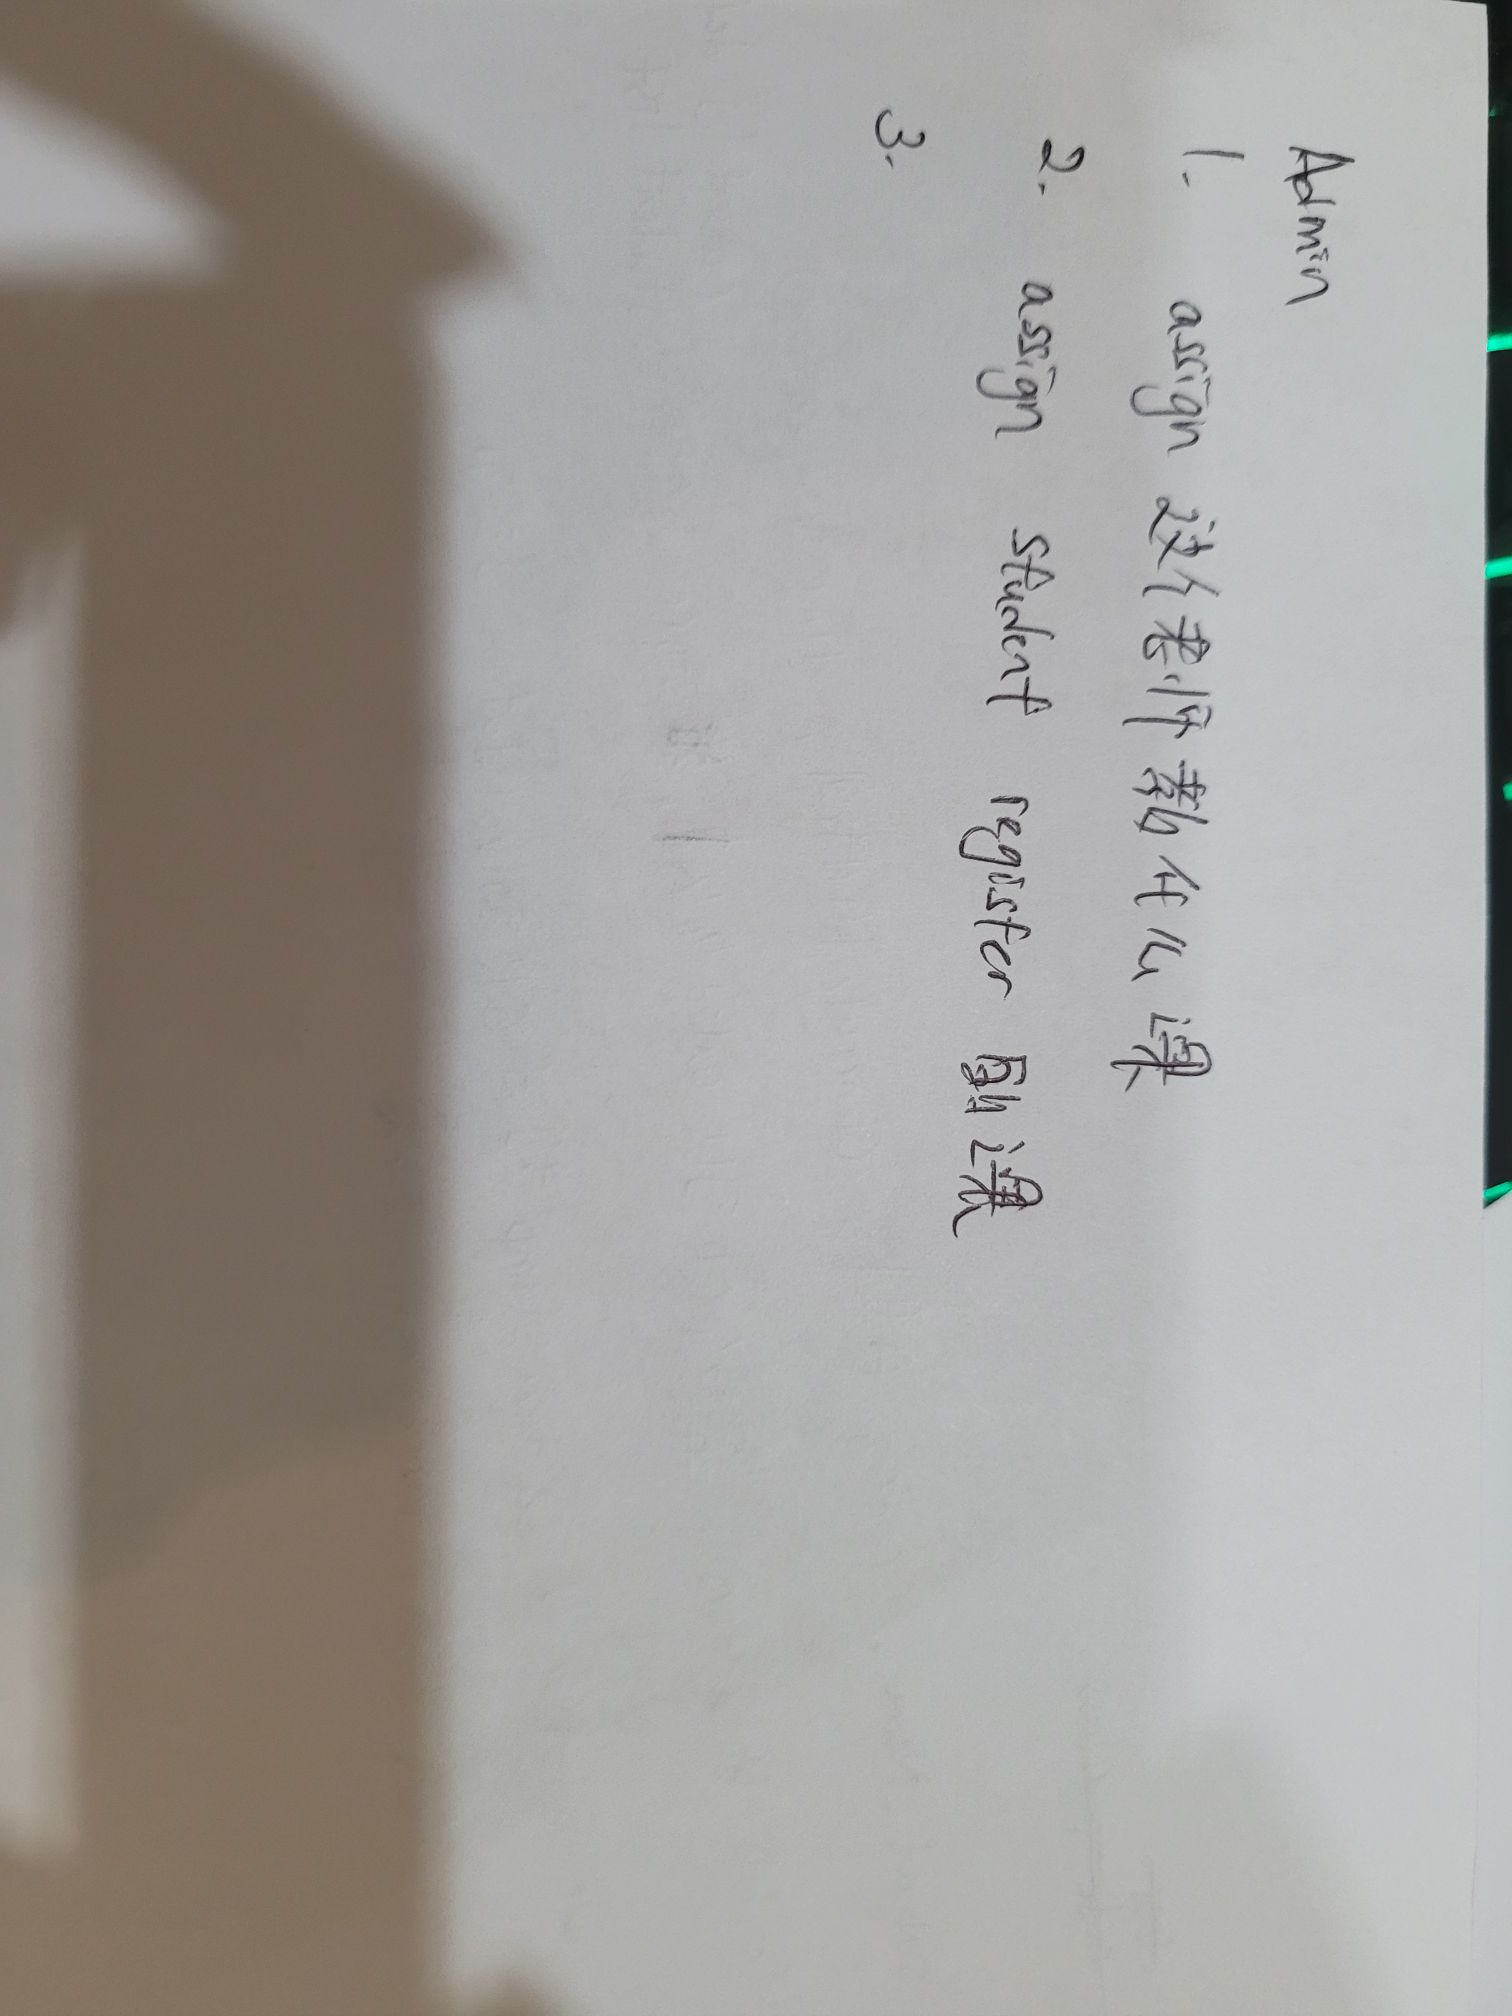 Admin
1. assign 这个老师教什么课
2. assign student register 的课
3.